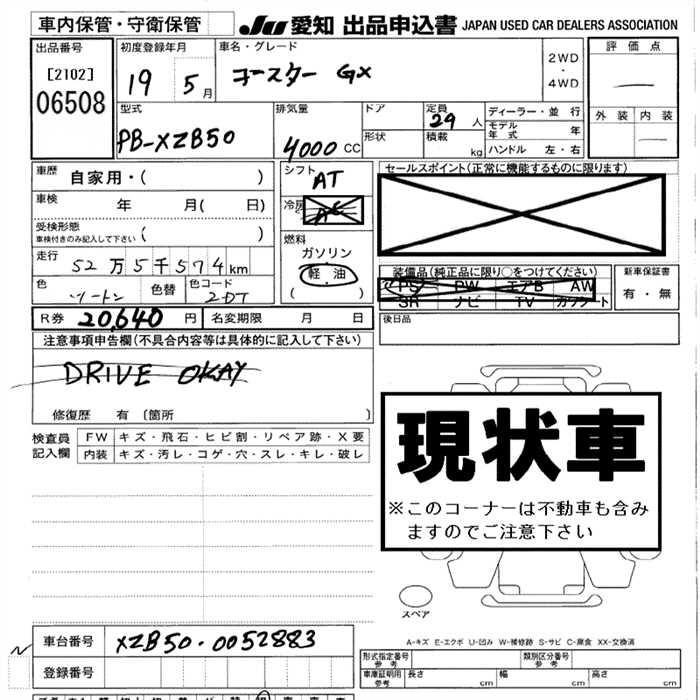 車内保管・守衛保管
JU 愛知 出品申込書 JAPAN USED CAR DEALERS ASSOCIATION
出品番号
[2102]
06508
初度登録年月
19 5月
車名・グレード
コースター GX
2WD
・
4WD
評価点
外装 内装
型式
PB-XZB50
排気量
4000 CC
ドア
形状
定員
29人
積載
kg
ディーラー・並行
モデル年式 年
ハンドル 左・右
車歴
自家用・( )
車検 年 月( 日)
受検形態
車検付きのみ記入して下さい ( )
走行
52万5千574km
色
ツートン
色替
色コード
2DT
シフト
AT
冷房
AC
燃料
ガソリン
軽・油
( )
セールスポイント(正常に機能するものに限ります)
装備品(純正品に限り○をつけてください)
PS PW エアB AW
SR ナビ TV カワシート
新車保証書
有・無
R券 20,640円
名変期限 月 日
後日品
注意事項申告欄(不具合内容等は具体的に記入して下さい)
DRIVE OKAY
修復歴 有〔箇所 〕
検査員記入欄
FW キズ・飛石・ヒビ割・リペア跡・X要
内装 キズ・汚レ・コゲ・穴・スレ・キレ・破レ
現状車
※このコーナーは不動車も含み
ますのでご注意下さい
スペア
A-キズ E-エクボ U-凹み W-補修跡 S-サビ C-腐食 XX-交換済
車台番号
XZB50-0052883
登録番号
形式指定番号
参考
類別区分番号
参考
車庫証明用
参考
長さ cm
幅 cm
高さ cm